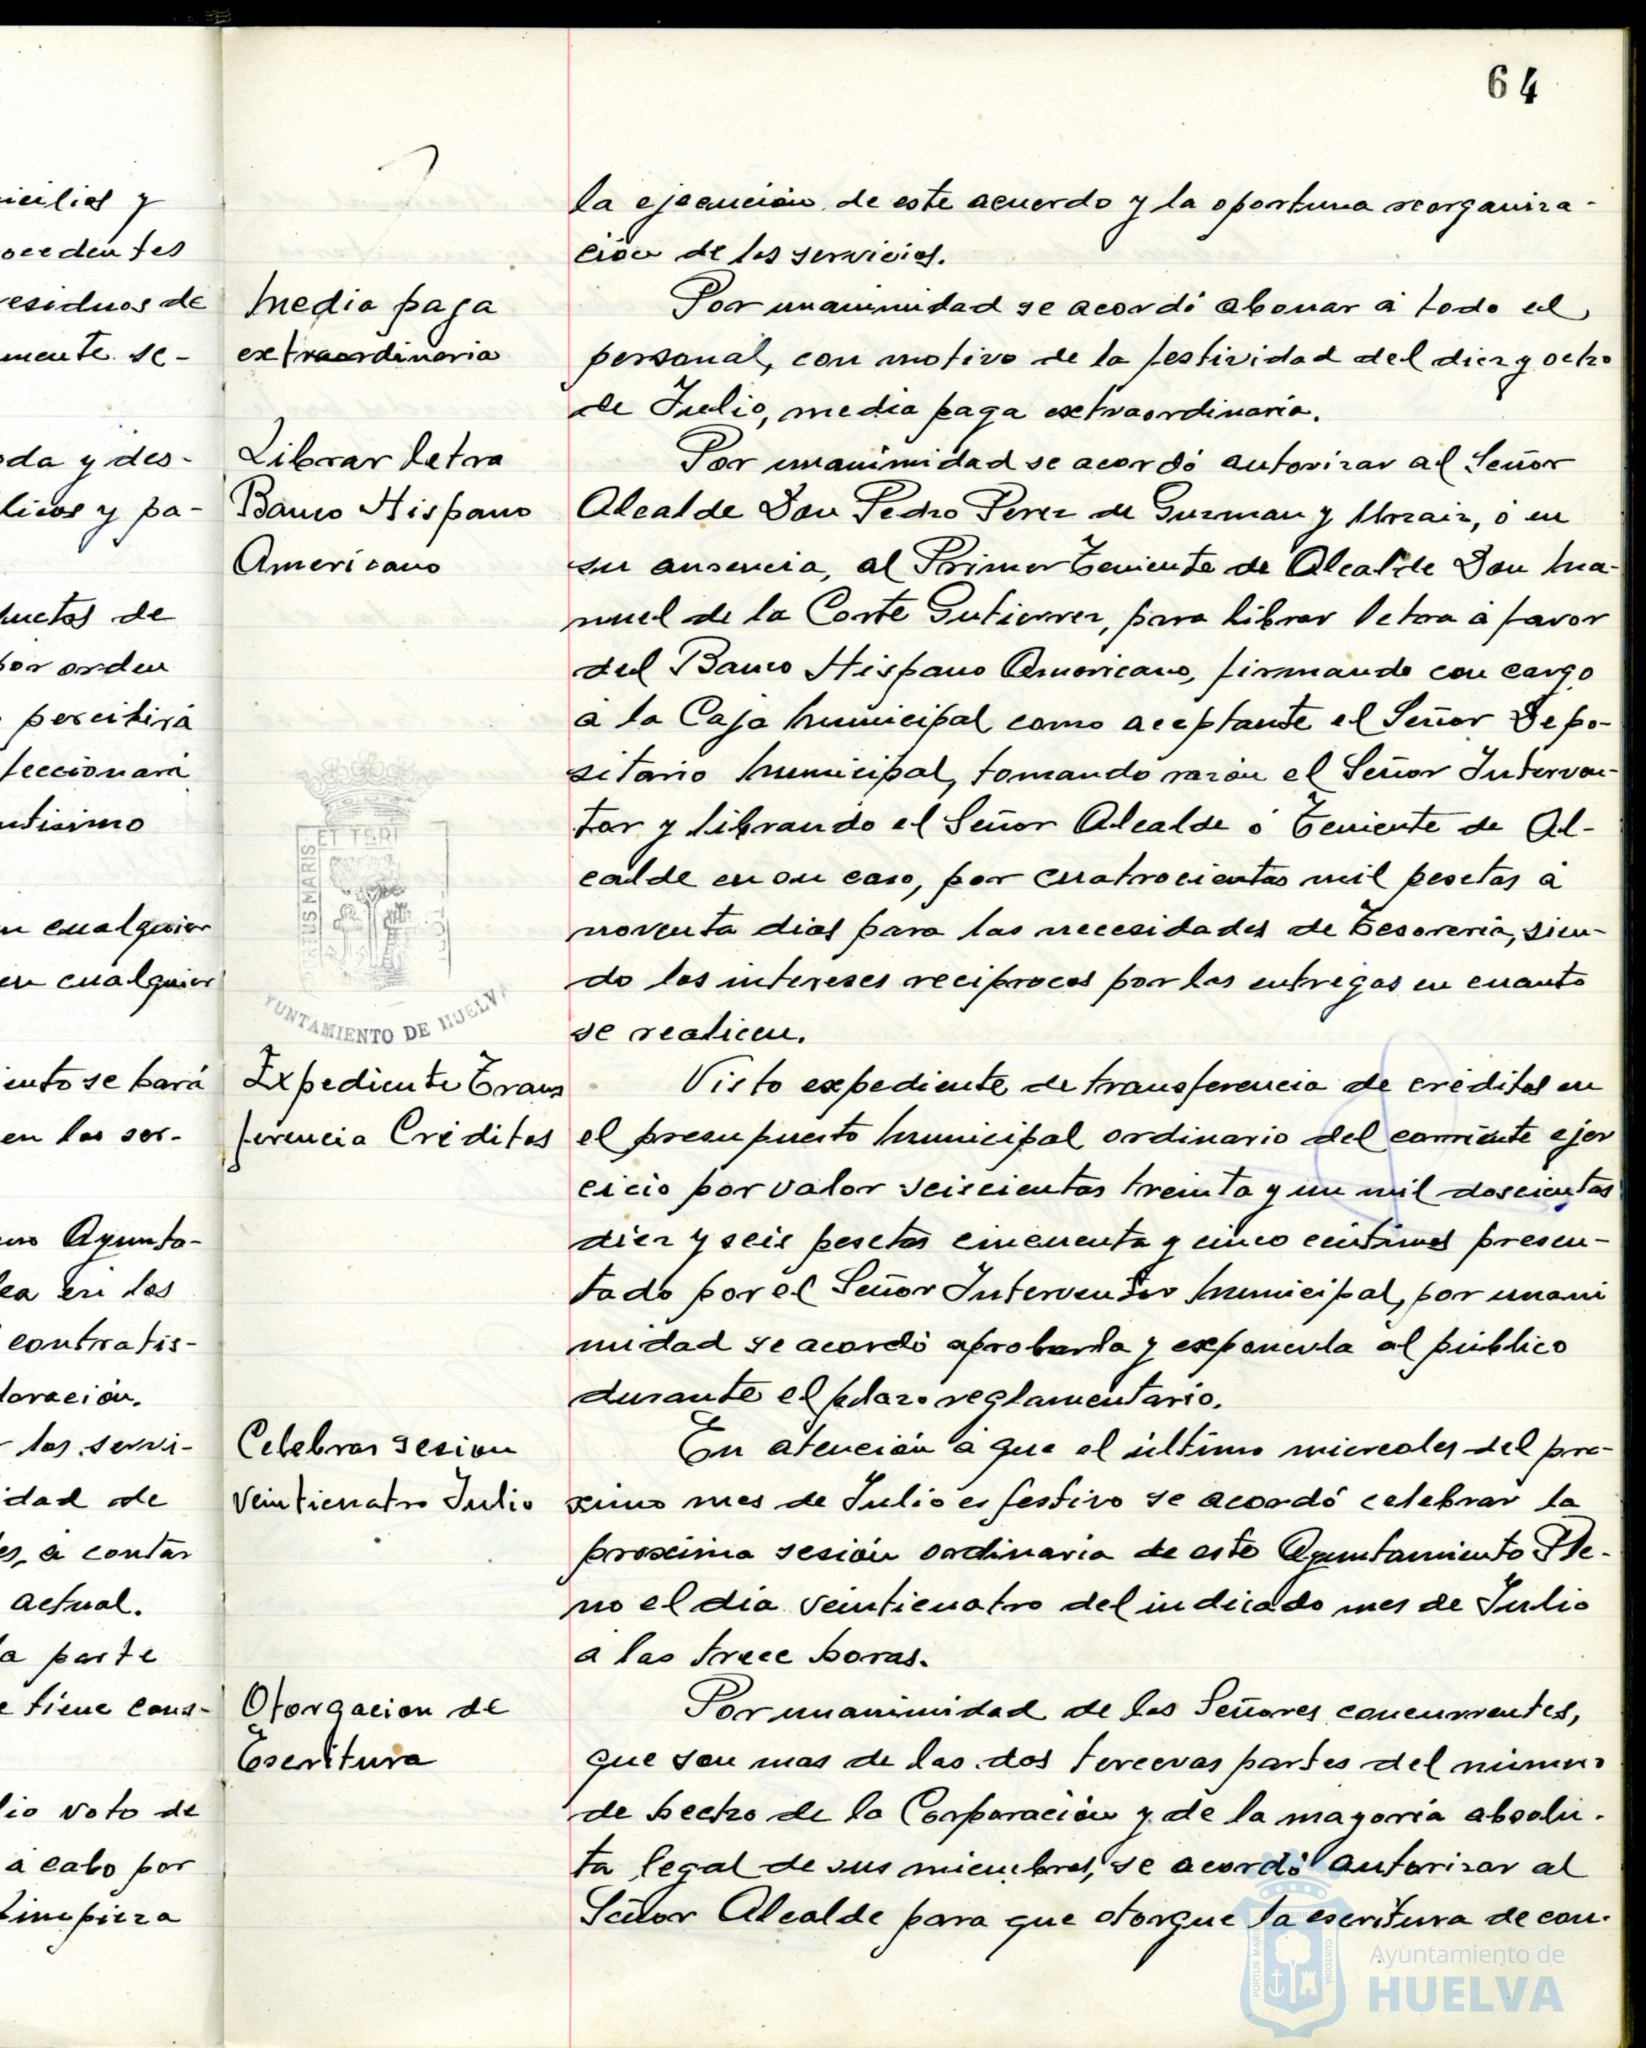 64
icilios y
ocedentes
residuos de
mente se-
oda y des-
licos y pa-
ductos de
por orden
percibirá
feccionará
ntisimo
n cualquier
en cualquier
iento se hará
en los ser-
mo Ayunta-
lea en los
contratis-
loración.
los servi-
idad de
es, a contar
actual.
la parte
e tiene cons-
lio voto de
a cabo por
limpieza
Media paga
extraordinaria
Librar letra
Banco Hispano
Americano
PORTUS MARIS
ET TERR
YUNTAMIENTO DE HUELVA
Expediente Trans
ferencia Créditos
Celebrar sesion
veinticuatro Julio
Otorgacion de
Escritura
la ejecución de este acuerdo y la oportuna reorganiza-
ción de los servicios.
Por unanimidad se acordó abonar á todo el
personal, con motivo de la festividad del diez y ocho
de Julio, media paga extraordinaria.
Por unanimidad se acordó autorizar al Señor
Alcalde Don Pedro Perez de Guzman y Urzaiz, ó en
su ausencia, al Primer Teniente de Alcalde Don Ma-
nuel de la Corte Gutierrez, para librar letra á favor
del Banco Hispano Americano, firmando con cargo
á la Caja Municipal como aceptante el Señor Depo-
sitario Municipal, tomando razón el Señor Interven-
tor y librando el Señor Alcalde ó Teniente de Al-
calde en su caso, por cuatrocientas mil pesetas á
noventa dias para las necesidades de Tesoreria, sien-
do los intereses reciprocos por las entregas en cuanto
se realicen.
Visto expediente de transferencia de créditos en
el presupuesto Municipal ordinario del corriente ejer
cicio por valor seiscientas treinta y un mil doscientas
diez y seis pesetas cincuenta y cinco céntimos presen-
tado por el Señor Interventor Municipal, por unani
midad se acordó aprobarla y exponerla al público
durante el plazo reglamentario.
En atención á que el último miercoles del pro-
ximo mes de Julio es festivo se acordó celebrar la
proxima sesión ordinaria de este Ayuntamiento Ple-
no el día veinticuatro del indicado mes de Julio
a las trece horas.
Por unanimidad de los Señores concurrentes,
que son mas de las dos terceras partes del número
de hecho de la Corporación y de la mayoría absolu-
ta legal de sus miembros, se acordó autorizar al
Señor Alcalde para que otorgue la escritura de con-
PORTUS MARIS
CUSTODIA
Ayuntamiento de
HUELVA